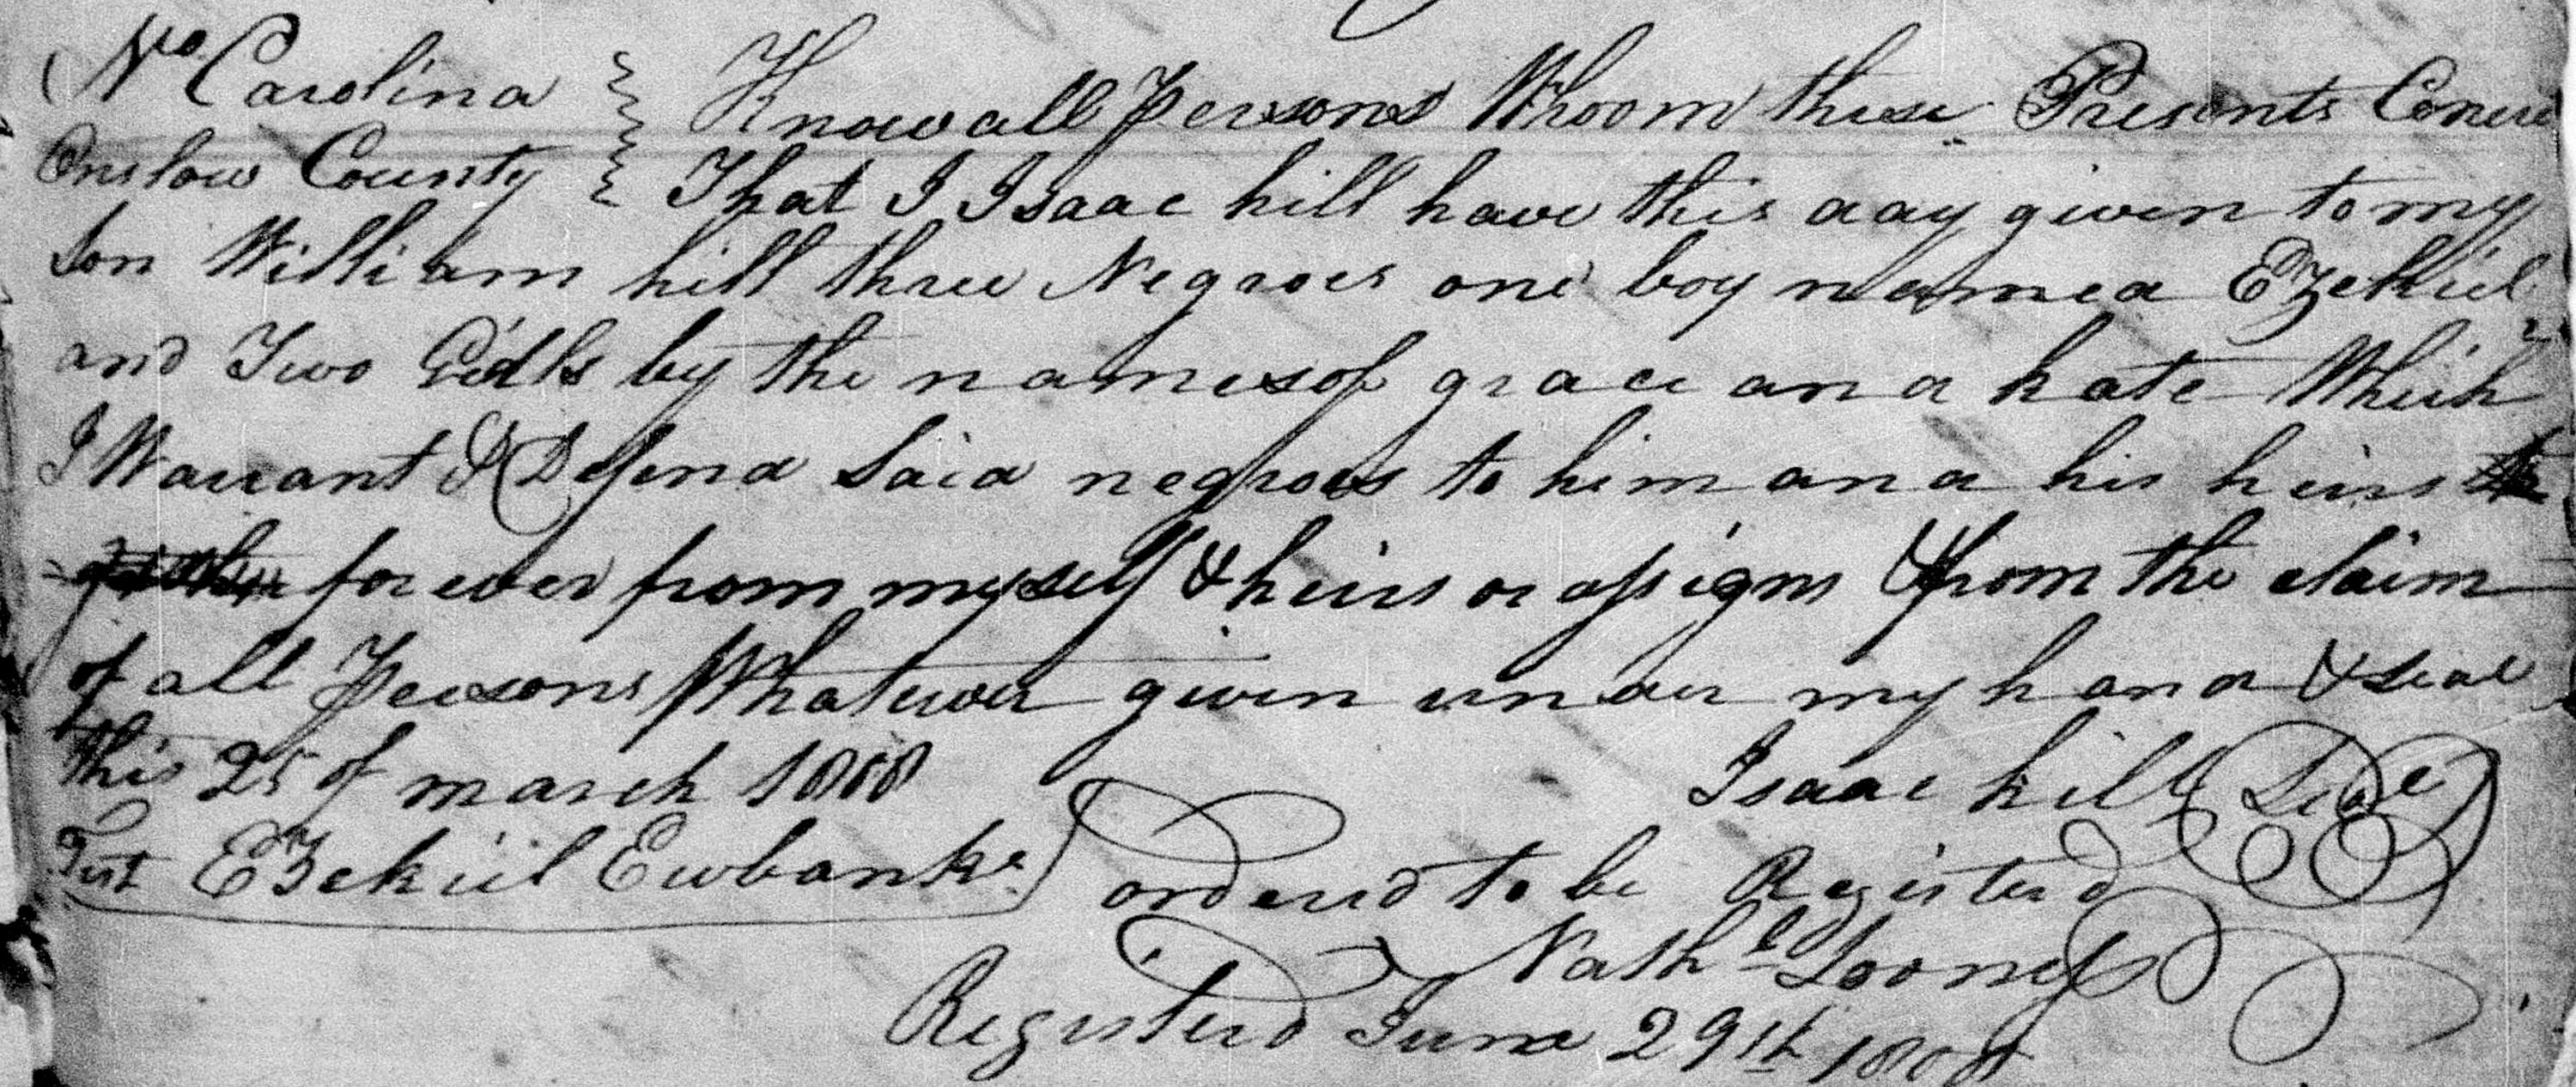 No Carolina } Know all Persons Whoom these Presents Concern
Onslow County } That I Isaac hill have this day given to my
Son William hill three Negroes one boy named Ezekiel
and Two Girls by the names of grace and kate Which
I Warrant & Defend Said negroes to him and his heirs
for ever from myself & heirs or assigns & from the claim
of all Persons Whatever given under my hand & seal
this 25 of march 1808
Isaac hill Seal
Test Ezekiel Ewbanks
orderd to be Registerd
Nathl Loomes
Registerd June 29th 1808